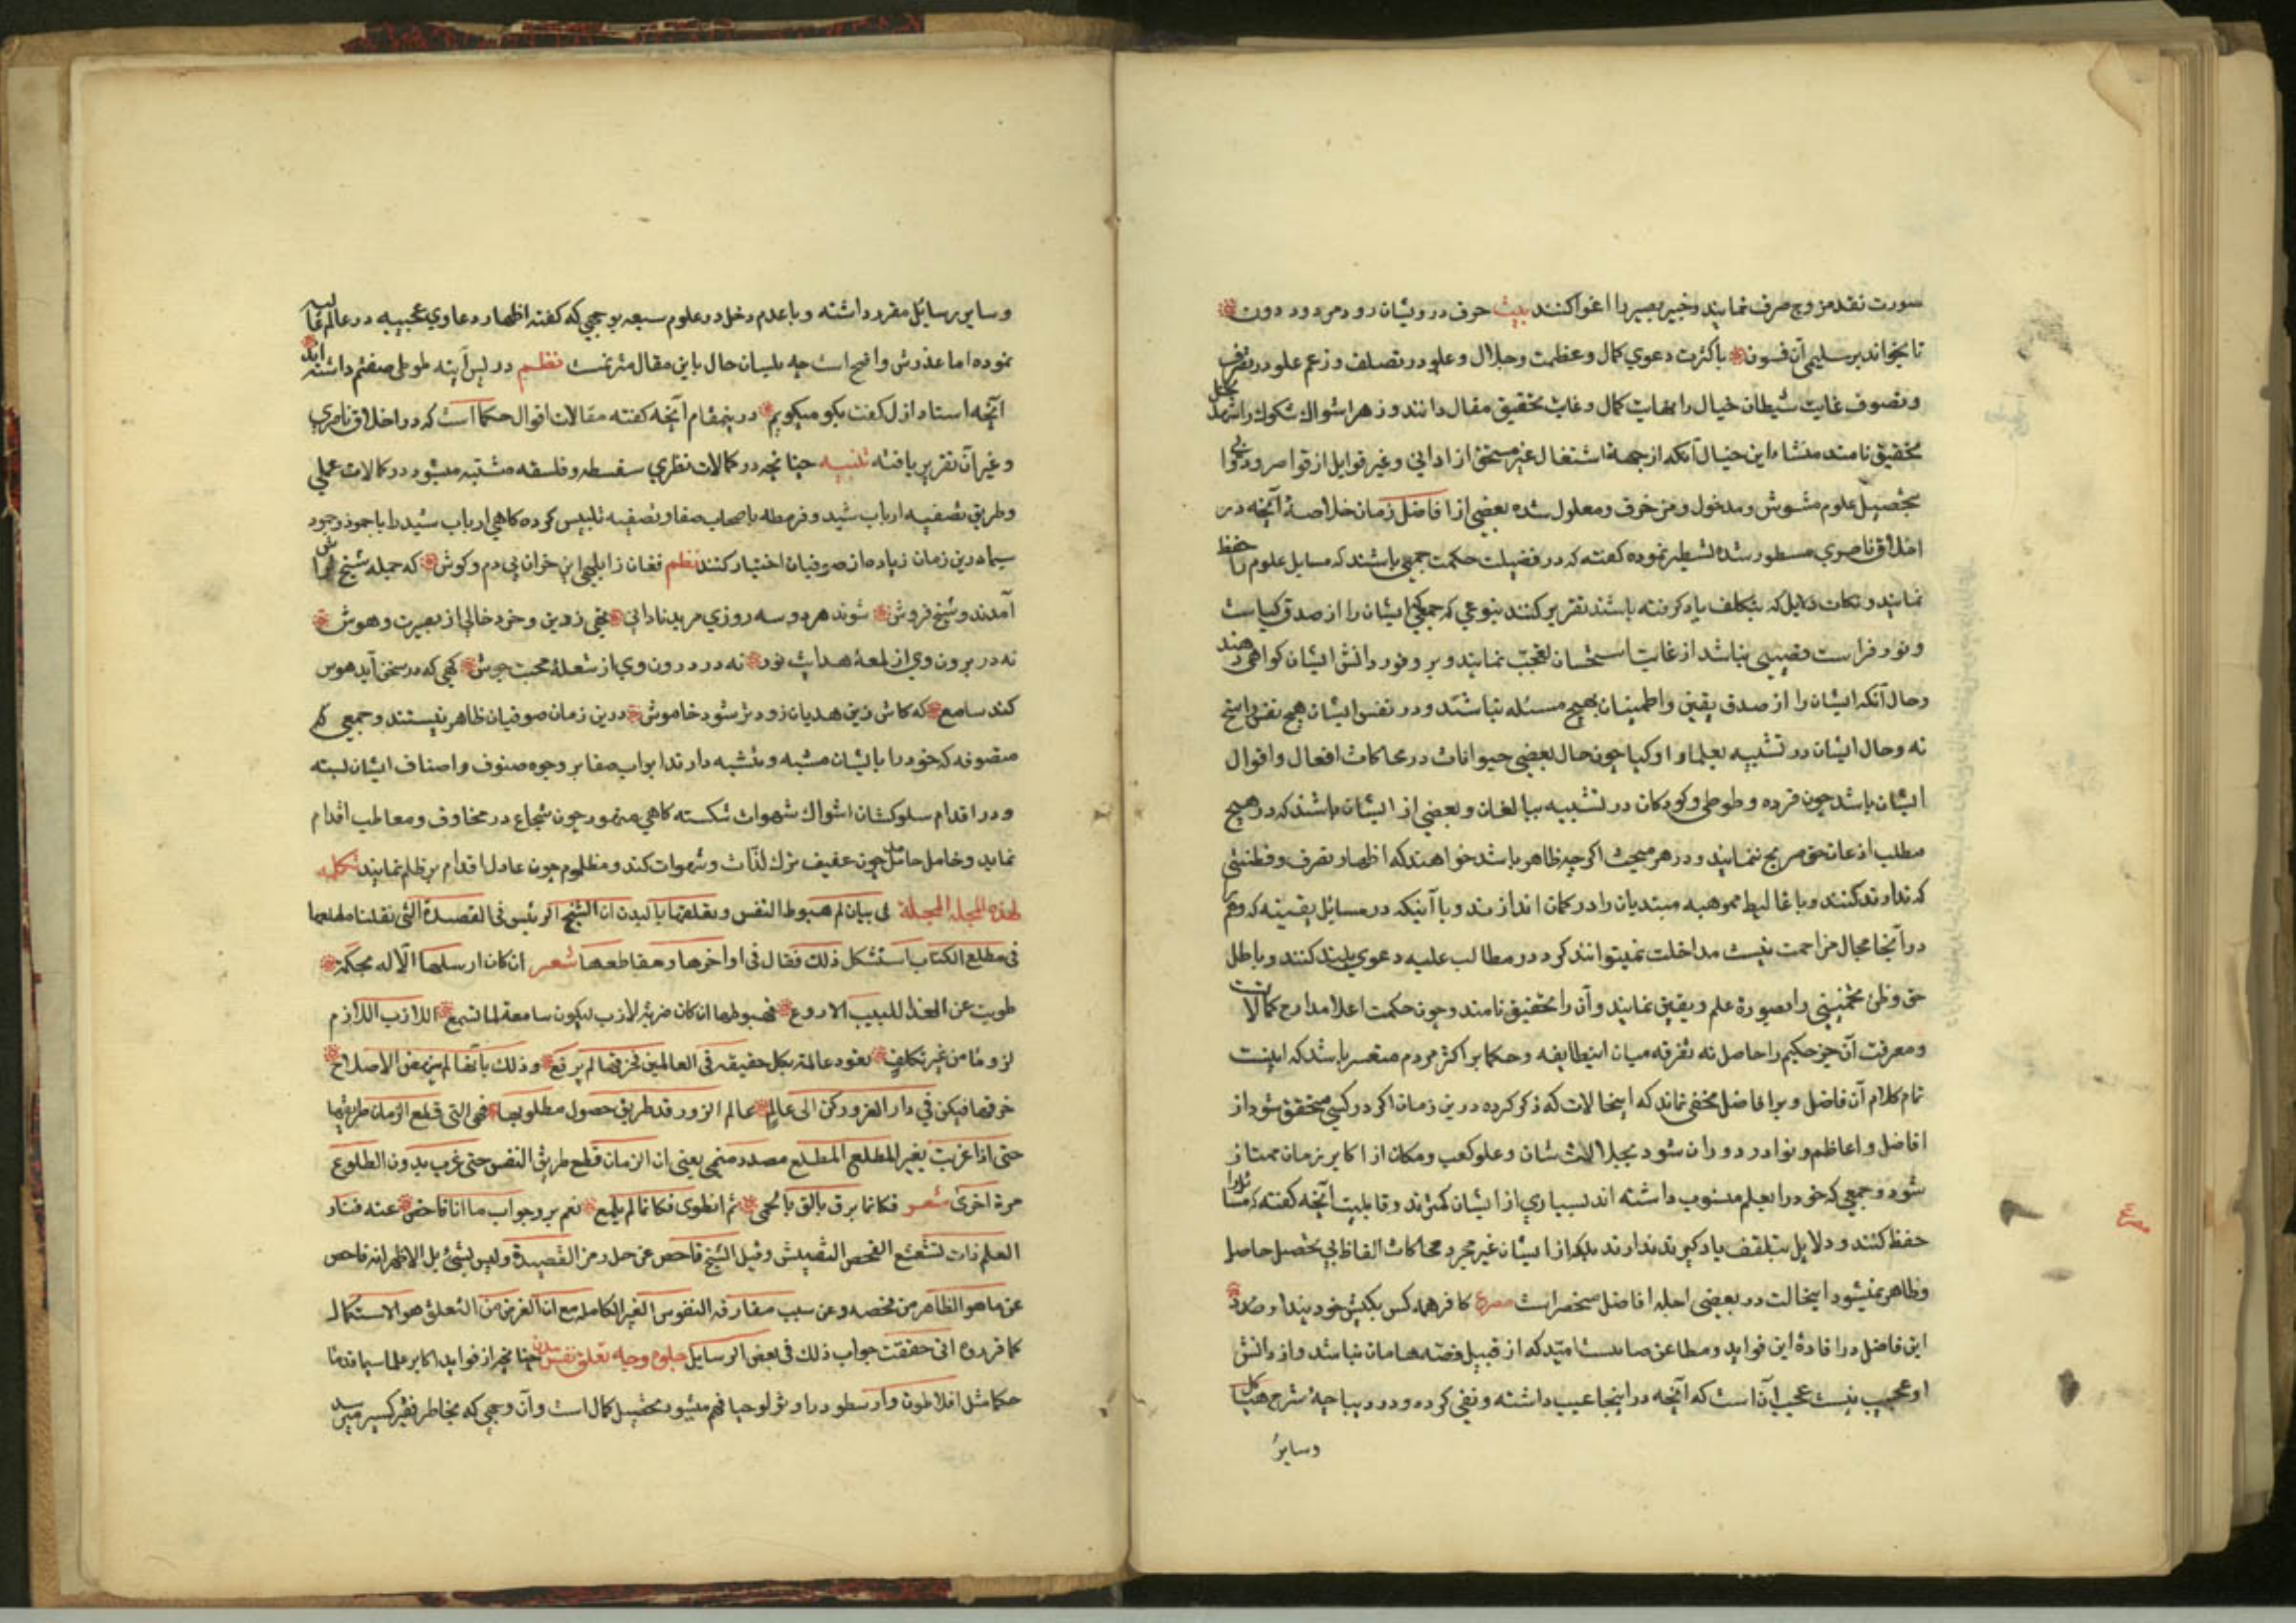 صورت نقد مزوج صرف نمایند و خبیر بصیر را اغوا کنند بیت حرف درویشان درود مردود دون
تا بخواند بر سلیمی آن فسون با کثرت دعوی کمال و عظمت و جلال و علو در تصلف و زعم علو در تصرف
و تصوف غایت شیطان خیال را نهایت کمال و غایت تحقیق مقال دانند و زهر اشواک شکوک را شهد
تحقیق نامند منشاء این خیال آنکه از جهة اشتغال غیر مستحق از ادانی و غیر قوابل از قواصر و دنی
بتحصیل علوم مشوش و مدخول و مزخرف و معلول شده بعضی از افاضل زمان خلاصهٔ آنچه در
اخلاق ناصری مسطور شده تسطیر نموده گفته که در فضیلت حکمت جمعی باشند که مسایل علوم را حفظ
نمایند و نکات دلایل که بتکلف یاد گرفته باشند تقریر کنند بنوعی که جمعی که ایشان را از صدق کیاست
و نور فراست نصیبی نباشد از غایت استحسان تعجب نمایند و بر وفور دانش ایشان گواهی دهند
و حال آنکه ایشان را از صدق یقین و اطمینان بهیچ مسئله نباشد و در نفس ایشان هیچ نقش راسخ
نه و حال ایشان در تشبیه بعلما و اوکیا چون حال بعضی حیوانات در محاکات افعال و اقوال
ایشان باشد چون قرده و طوطی و کودکان در تشبیه ببالغان و بعضی از ایشان باشند که در هیچ
مطلب اذعان حق صریح ننمایند و در هر مبحث اگر چه ظاهر باشد خواهند که اظهار تصرف و فطنتی
که ندارند کنند و باغالیط مموهه مبتدیان را در کمان اندازند و با آنکه در مسائل یقینه که وهم
در آنجا مجال مزاحمت نیست مداخلت نمیتوانند کرد در مطالب علیه دعوی بلند کنند و باطل
حق و ظن تخمینی را بصورة علم و یقین نمایند و آن را تحقیق نامند و چون حکمت اعلا مدارج کمالات
و معرفت آن جز حکیم را حاصل نه تفرقه میان اینطایفه و حکما بر اکثر مردم متعسر باشد که اینست
تمام کلام آن فاضل و برافاضل مخفی نماند که اینحالات که ذکر کرده درین زمان اگر در کسی متحقق شود از
افاضل و اعاظم و نوادر دوران شود بجلالت شان و علو کعب و مکان از اکابر زمان ممتاز
شود و جمعی که خود را بعلم منسوب داشته اند بسیاری از ایشان کمترند و قابلیت آنچه گفته که
حفظ کنند و دلایل بتلقف یاد گیرند ندارند بلکه از ایشان غیر مجرد محاکات الفاظ بی تحصیل حاصل
و ظاهر نمیشود اینحالت در بعضی اجله افاضل منحصر است مصرع کافر همه کس بکیش خود پندارد
این فاضل در افادهٔ این فواید و مطاعن که از قبیل قصه هامان نباشد و از دانش
او عجیب نیست عجب آن است که آنچه در اینجا عیب داشته و نفی کرده و در دیباچهٔ شرح هیاکل
وسایر
مصرع
و سایر رسایل مقرر داشته و با عدم دخل در علوم سیعه بوجهی که گفته اظهار دعاوی عجیبه در عالم
نموده اما عذرش واضح است چه بلسان حال باین مقال مترنمست نظم در پس آینه طوطی صفتم داشته اند
آنچه استاد ازل گفت بگو میگویم درینمقام آنچه گفته مقالات اقوال حکما است که در اخلاق ناصری
و غیر آن تقریر یافته تنبیه چنانچه در کمالات نظری سفسطه و فلسفه مشتبه میشود در کمالات عملی
و طریق تصفیه ارباب شید و قرمطه باصحاب صفا و تصفیه تلبیس کرده گاهی ارباب شید را
سیما درین زمان زیاده از صوفیان اختیار کنند نظم فغان ز ابلهی این خران بی دم و گوش که جمله شیخ تراش
آمدند و شیخ فروش شوند هر دو سه روزی مرید نادانی تهی ز دین و خرد خالی از بصیرت و هوش
نه در برون وی از لمعهٔ هدایت نور نه در درون وی از شعلهٔ محبت جوش گهی که در سخن آید هوس
کند سامع که کاش زین هذیان زودتر شود خاموش درین زمان صوفیان ظاهر نیستند و جمعی
متصوفه که خود را بایشان مشبه و متشبه دارند ابواب صفا بر وجوه صنوف و اصناف ایشان بسته
و در اقدام سلوکشان اشواک شهوات شکسته گاهی متهور چون شجاع در مخاوف و معاطب اقدام
نماید و خامل جاهل چون عفیف ترک لذات و شهوات کند و مظلوم چون عادل اقدام بر ظلم نمایند تکمله
لهذه المجلة المجلة فی بیان لم هبوط النفس و تعلقها بالبدن ان الشیخ الرئیس فی القصیدة التی نقلنا مطلعها
فی مطلع الکتاب استشکل ذلک فقال فی اواخرها و مقاطعها شعر ان کان ارسلها الاله بحکمة
طویت عن الفذ اللبیب الاروع فهبوطها ان کان ضربة لازب لیکون سامعة لما تسمع اللازب اللازم
لزوما من غیر تکلف تعود عالمة بکل حقیقة فی العالمین فخرقها لم یرقع و ذلک بانها لم یتمن الاصلاح
خرقها فیکن فی دار الغرور رکن الی عالم عالم الزور قد طریق حصول مطلوبها فهی التی قطع الزمان طریقها
حتی اذا غربت بغیر المطلع المطلع مصدر میمی یعنی ان الزمان قطع طریق النفس حتی غرب بدون الطلوع
مرة اخری شعر فکانما برق تالق بالحمی ثم انطوی فکانما لم یلمع نعم برد جواب ما انا فاحص عنه فنار
العلم ذات تشعشع الفحص التفتیش و قیل الشیخ فاحص عن حل رمز القصیدة و لیس بشیء بل الاظهر انه فاحص
عن ما هو الظاهر من فحصه و عن سبب مفارقة النفوس الغیر الکامله مع ان الغرض من التعلق هو الاستکمال
کما قرروه انی حققت جواب ذلک فی بعض الرسایل جلوه وجه تعلق نفس ببدن چنانچه از فواید اکابر علما سیما قدمای
حکما مثل افلاطون و ارسطو در اوثولوجیا فهم میشود تحصیل کمال است و آن وجهی که بخاطر فقیر کسیر میرسد